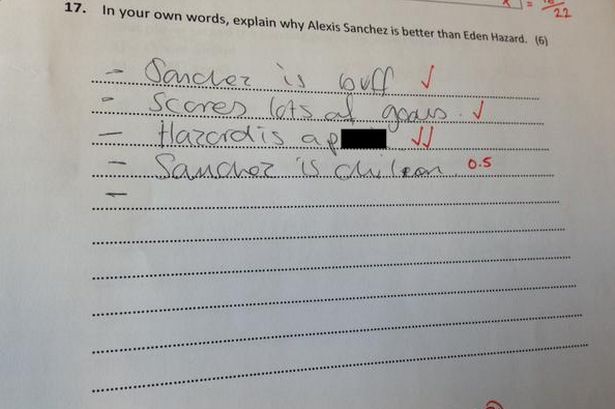 22
17. In your own words, explain why Alexis Sanchez is better than Eden Hazard. (6)
- Sanchez is buff ✓
- Scores lots of goals. ✓
- Hazard is a p ✓✓
- Sanchez is chilean. 0.5
-